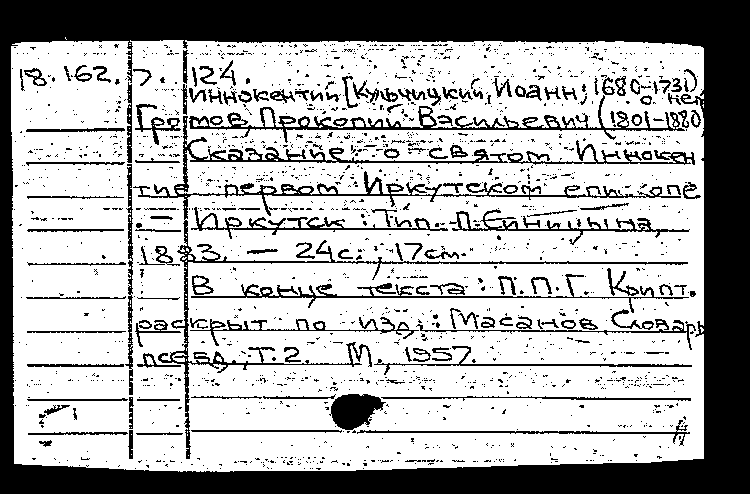 18.162.7.124.
Иннокентий [Кульчицкий, Иоанн; 1680-1731)
о нем
Громов, Прокопий Васильевич (1801-1880)
Сказание о святом Иннокен-
тие первом Иркутском епископе
.— Иркутск : Тип. П. Синицына,
1883. — 24с. ; 17см.
В конце текста : П.П.Г. Крипт.
раскрыт по изд.: Масанов. Словарь
псевд., Т.2. М., 1957.